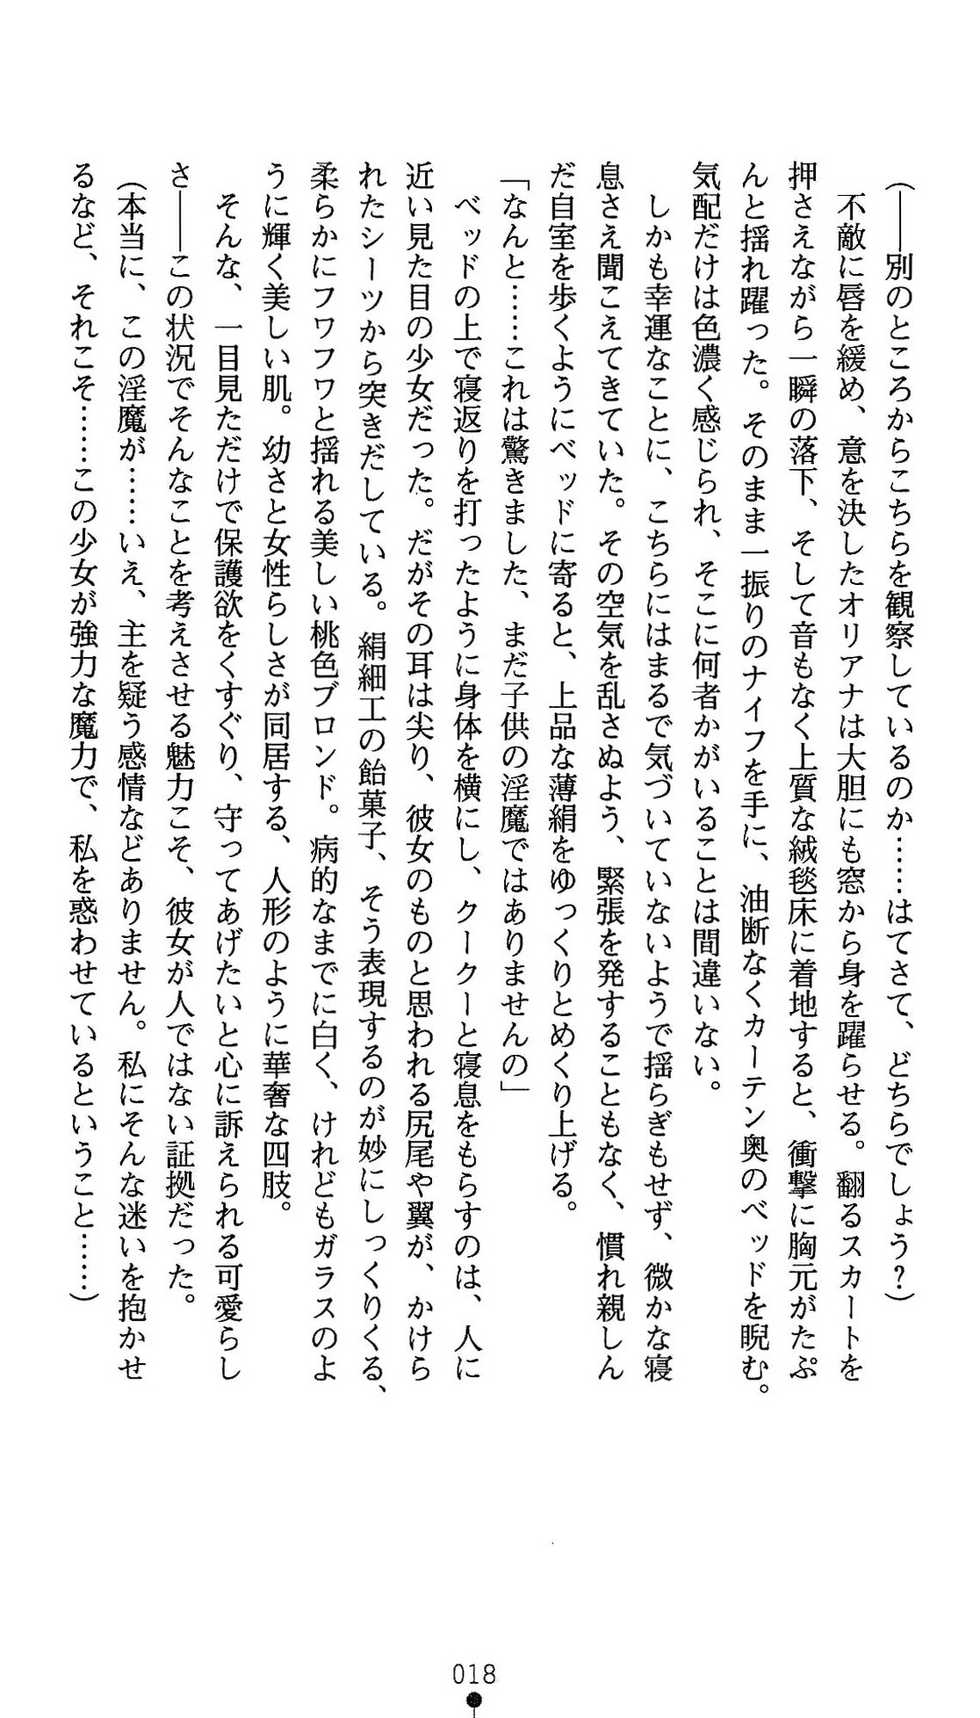 (――別のところからこちらを観察しているのか……はてさて、どちらでしょう？)
　不敵に唇を緩め、意を決したオリアナは大胆にも窓から身を躍らせる。翻るスカートを
押さえながら一瞬の落下、そして音もなく上質な絨毯床に着地すると、衝撃に胸元がたぷ
んと揺れ躍った。そのまま一振りのナイフを手に、油断なくカーテン奥のベッドを睨む。
気配だけは色濃く感じられ、そこに何者かがいることは間違いない。
　しかも幸運なことに、こちらにはまるで気づいていないようで揺らぎもせず、微かな寝
息さえ聞こえてきていた。その空気を乱さぬよう、緊張を発することもなく、慣れ親しん
だ自室を歩くようにベッドに寄ると、上品な薄絹をゆっくりとめくり上げる。
「なんと……これは驚きました、まだ子供の淫魔ではありませんの」
　ベッドの上で寝返りを打ったように身体を横にし、クークーと寝息をもらすのは、人に
近い見た目の少女だった。だがその耳は尖り、彼女のものと思われる尻尾や翼が、かけら
れたシーツから突きだしている。絹細工の飴菓子、そう表現するのが妙にしっくりくる、
柔らかにフワフワと揺れる美しい桃色ブロンド。病的なまでに白く、けれどもガラスのよ
うに輝く美しい肌。幼さと女性らしさが同居する、人形のように華奢な四肢。
　そんな、一目見ただけで保護欲をくすぐり、守ってあげたいと心に訴えられる可愛らし
さ――この状況でそんなことを考えさせる魅力こそ、彼女が人ではない証拠だった。
(本当に、この淫魔が……いえ、主を疑う感情などありません。私にそんな迷いを抱かせ
るなど、それこそ……この少女が強力な魔力で、私を惑わせているということ……)
018